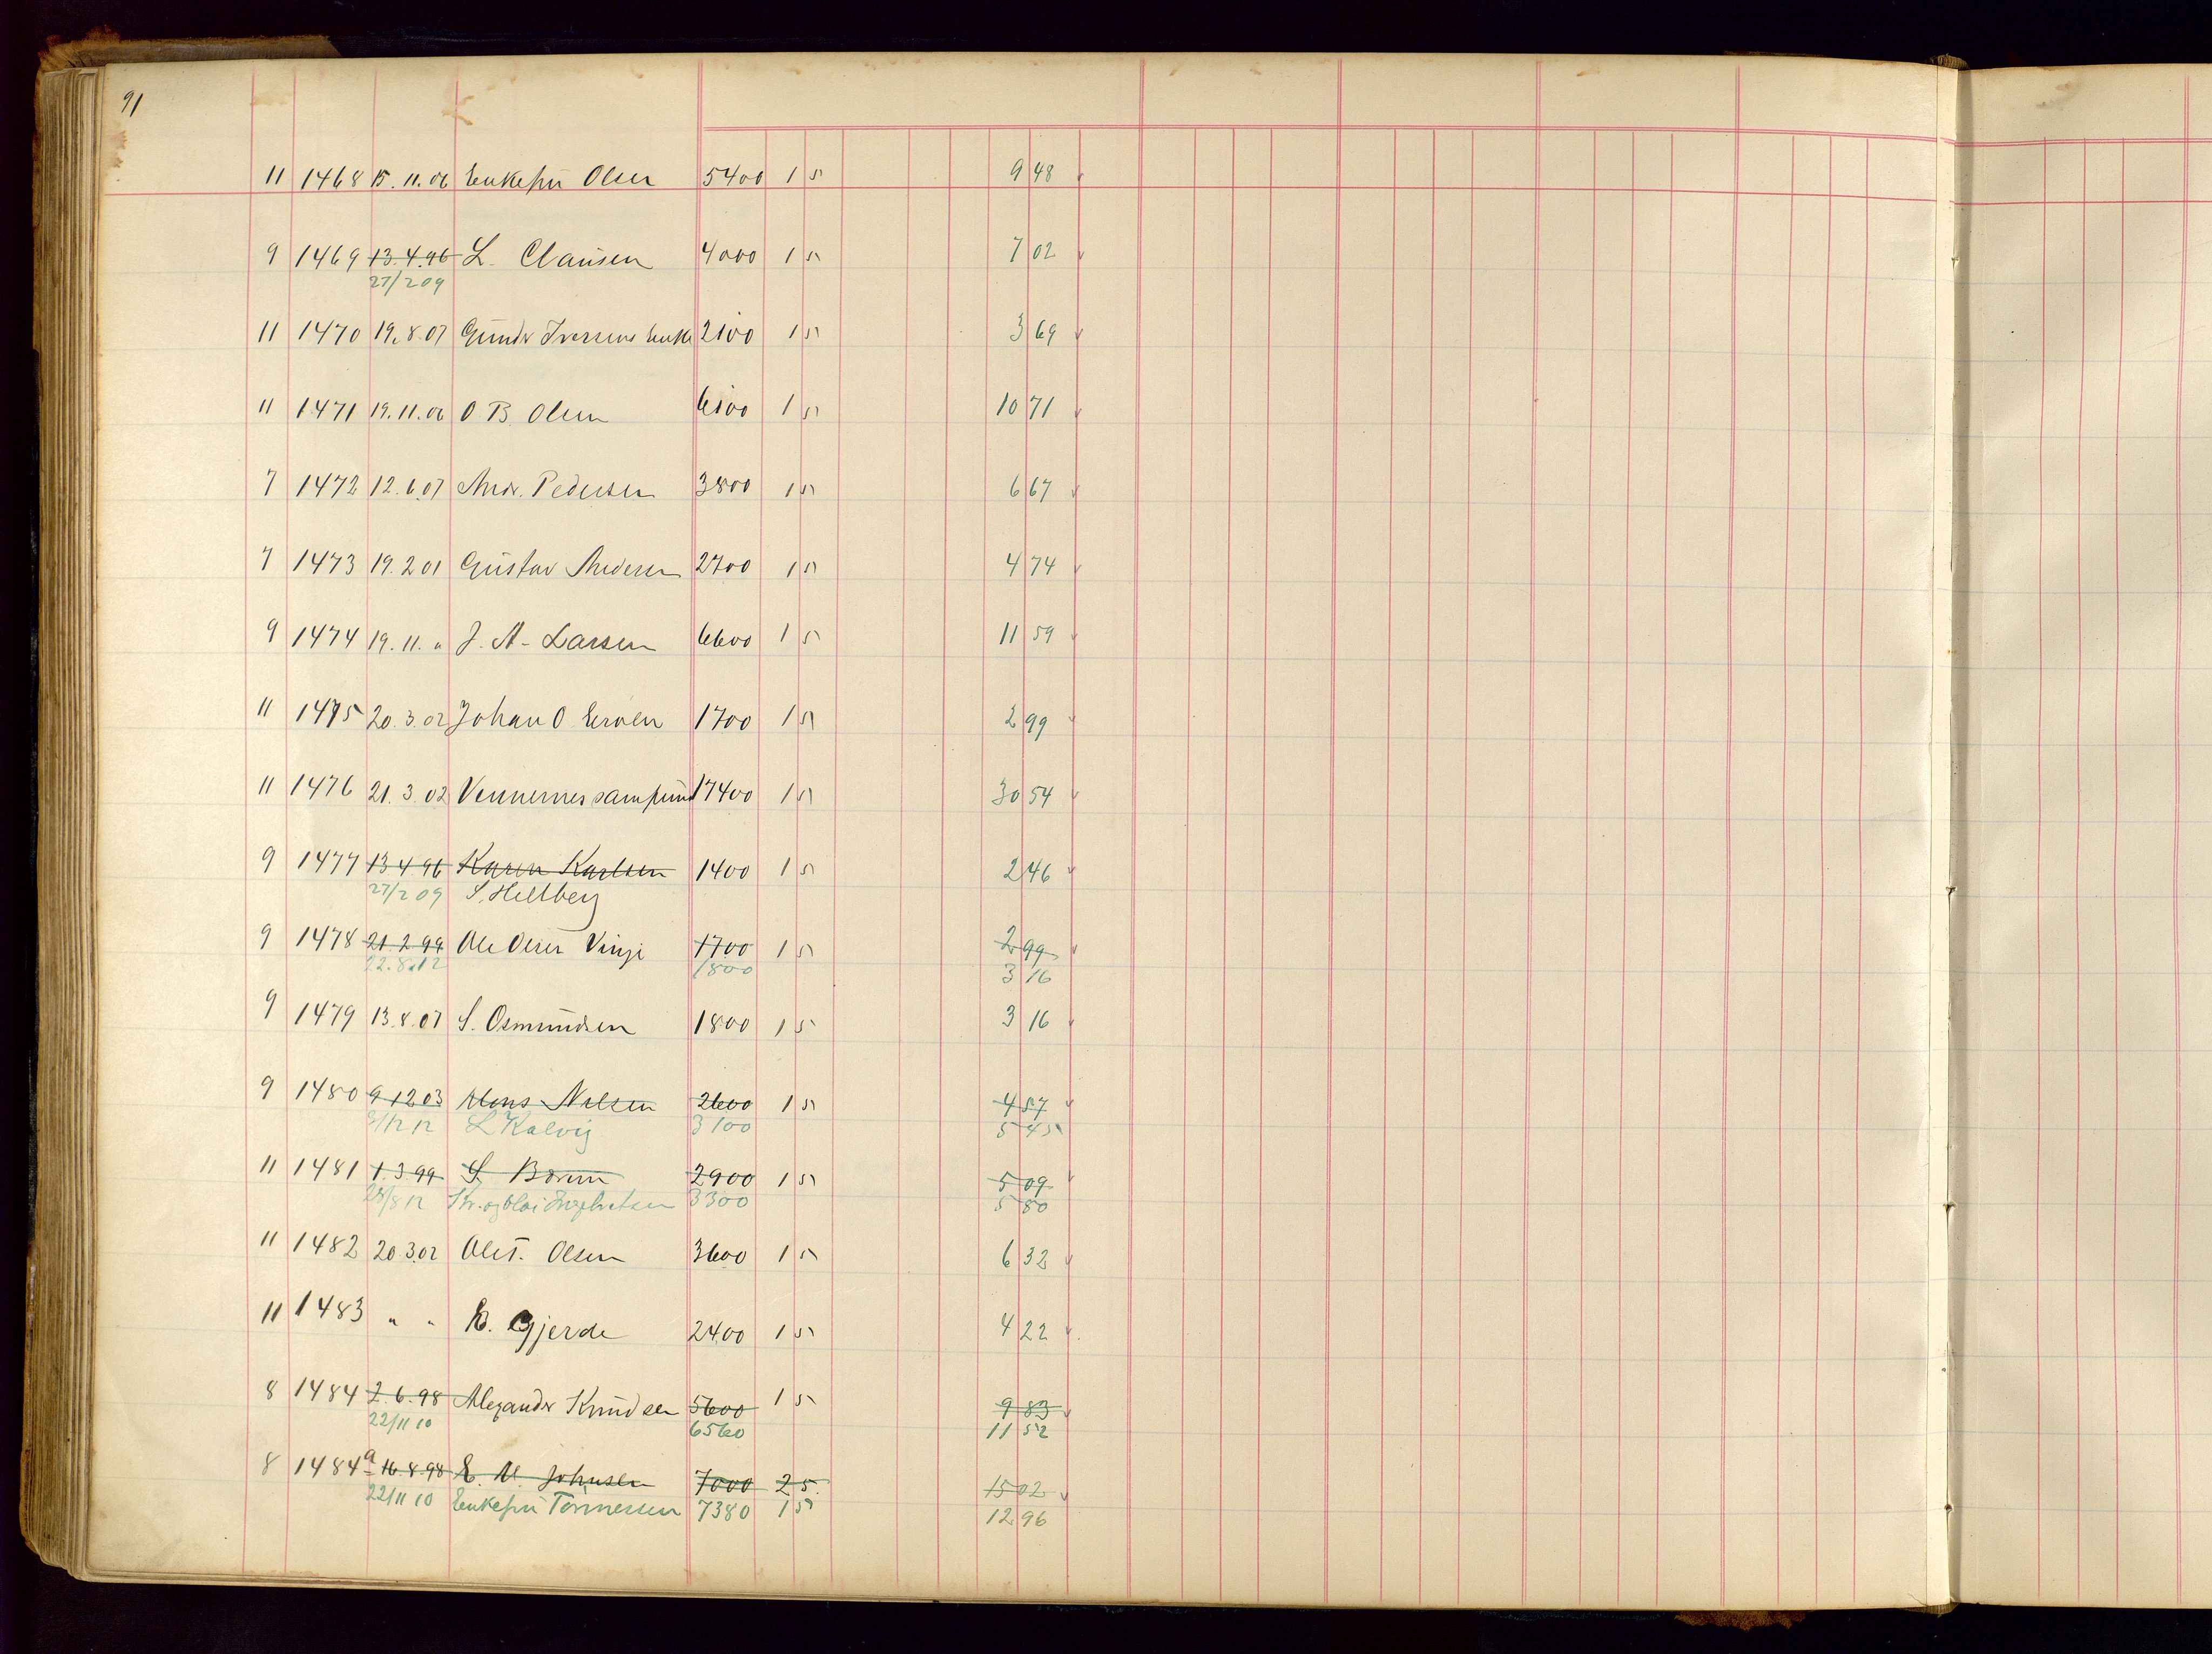 91
11 1468 15.11.06 Enkefrü Olsen 5400 1 5 9 48 v
9 1469 13.4.96 L. Clausen 4000 1 5 7 02 v
27/2 09
11 1470 19.8.07 Gunder Iversens Enke 2100 1 5 3 69 v
11 1471 19.11.06 O. B. Olsen 6100 1 5 10 71 v
7 1472 12.6.07 Andr. Pedersen 3800 1 5 6 67 v
7 1473 19.2.01 Gustav Andersen 2700 1 5 4 74 v
9 1474 19.11. " J. A. Larsen 6600 1 5 11 59 v
11 1475 20.3.02 Johan O. 1700 1 5 2 99 v
11 1476 21.3.02 Vennernes samfund 17400 1 5 30 54 v
9 1477 13.4.96 Karen Karlsen 1400 1 5 2 46 v
27/2 09 S. Hellberg
9 1478 21.2.99 Ole Olsen Vinje 1700 1 5 2 99 v
22.8.12 1800 3 16
9 1479 13.8.07 S. Osmundsen 1800 1 5 3 16 v
9 1480 9.12.03 Mons Nilsen 2600 1 5 4 57 v
9/12 12 L Kalvig 3100 5 45
11 1481 1.3.99 S. 2900 1 5 5 09 v
28/8 12 3300 5 80
11 1482 20.3.02 Ole T. Olsen 3600 1 5 6 32 v
11 1483 " " B. Gjerde 2400 1 5 4 22 v
8 1484 2.6.98 Alexander Knudsen 5600 1 5 9 83 v
22/11 10 6560 11 52
8 1484a 16.8.98 E. M. Johnsen 7000 2 5. 15 02 v
22/11 10 Enkefrü Tönnessen 7380 1 5 12 96